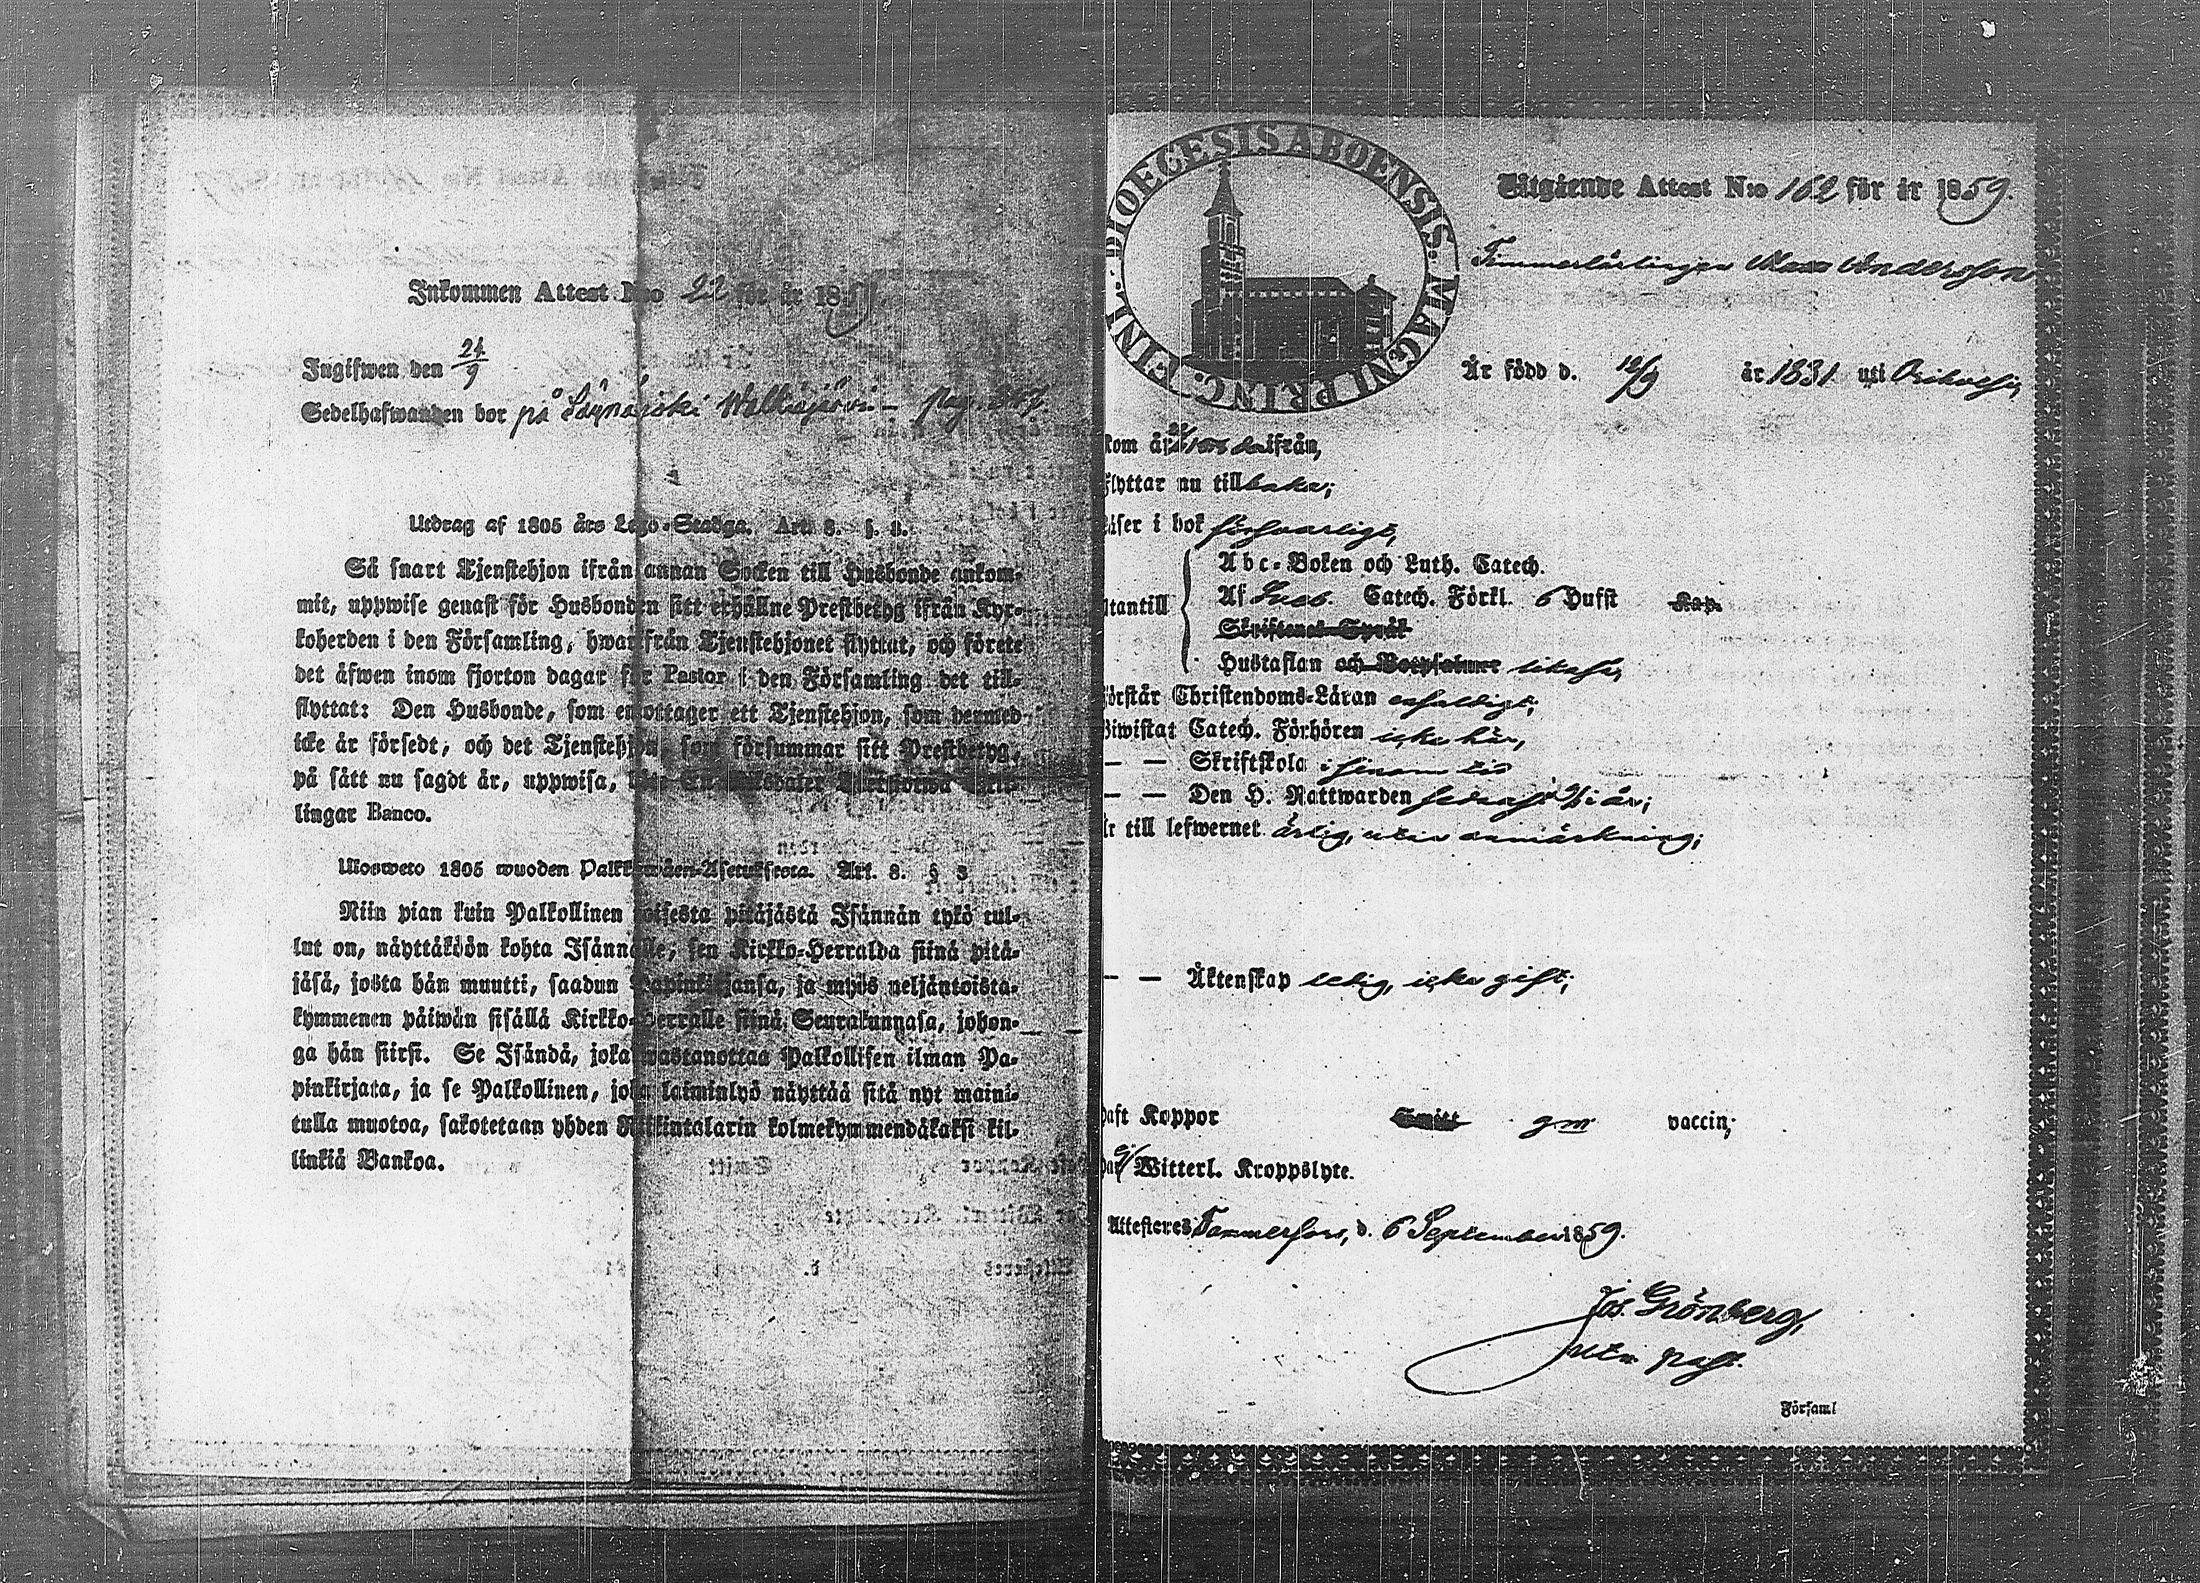 Inkommen Attest N:o 22 för år 185
Ingifwen den 24/9
Sedelhafwanden bor på Wallisjärvi - pag.
Utdrag af 1805 års Lego-Stadga. Art. 8. §. 3.
Så snart Tjenstehjon ifrån annan Socken till Husbonde ankom-
mit, uppwise genast för Husbonden sitt erhållne Prestbetyg ifrån Kyr-
koherden i den Församling, hwarifrån Tjenstehjonet flyttat, och förete
det äfwen inom fjorton dagar för Pastor i den Församling det till-
flyttat: Den Husbonde, som emottager ett Tjenstehjon, som dermed
icke är försedt, och det Tjenstehjon, som försummar sitt Prestbetyg,
på sätt nu sagdt är, uppwisa,
lingar Banco.
Ulosweto 1805 wuoden Palkkawäen-Asetuksesta. Art. 8. § 3
Niin pian kuin Palkollinen toisesta pitäjästä Isännän tykö tul-
lut on, näyttäköön kohta Isännälle, sen Kirkko-Herralda siinä pitä-
jäsä, josta hän muutti, saadun Papinkirjansa, ja myös neljäntoista-
kymmenen päiwän sisällä Kirkko-Herralle siinä Seurakunnasa, johon-
ga hän siirsi. Se Isändä, joka wastanottaa Palkollisen ilman Pa-
pinkirjata, ja se Palkollinen, joka laiminlyö näyttää sitä nyt maini-
tulla muotoa, sakotetaan yhden Rikintalarin kolmekymmendäkaksi kil-
linkiä Bankoa.
FINL. DIOECESIS ABOENSIS. MAGNI PRINC.
Utgående Attest N:o 162 för år 1859.
Timmerlärlingen Andersson
Är född d. 12/9 år 1831 uti Orihvesi,
kom år ifrån,
flyttar nu tillbaka;
läser i bok försvarligt,
Abc-Boken och Luth. Catech.
utantill Af Sveb. Catech. Förkl. 6 Hufst Kap.
Skriftenes Språk
Hustaflan och Botpsalmer likaså,
förstår Christendoms-Läran enfaldigt;
Biwistat Catech. Förhören icke här,
— — Skriftskola i sinom tid
— — Den H. Nattwarden sednast i år;
är till lefwernet ärlig, utan anmärkning;
— — Äktenskap ledig, icke gift;
haft Koppor Smitt gm vaccin;
har ej Witterl. Kroppslyte.
Attesteres Tammerfors, d. 6 September 1859.
Jos. Grönberg,
past.
Församl